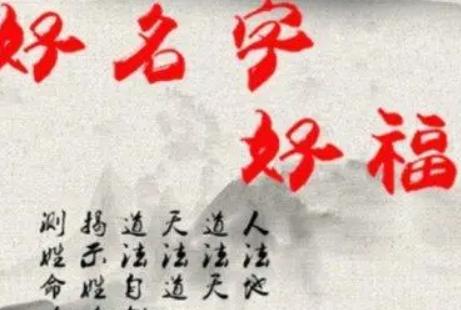 好名字
好福
人法地
道法天
天法道
道法自
揭示姓
测姓命